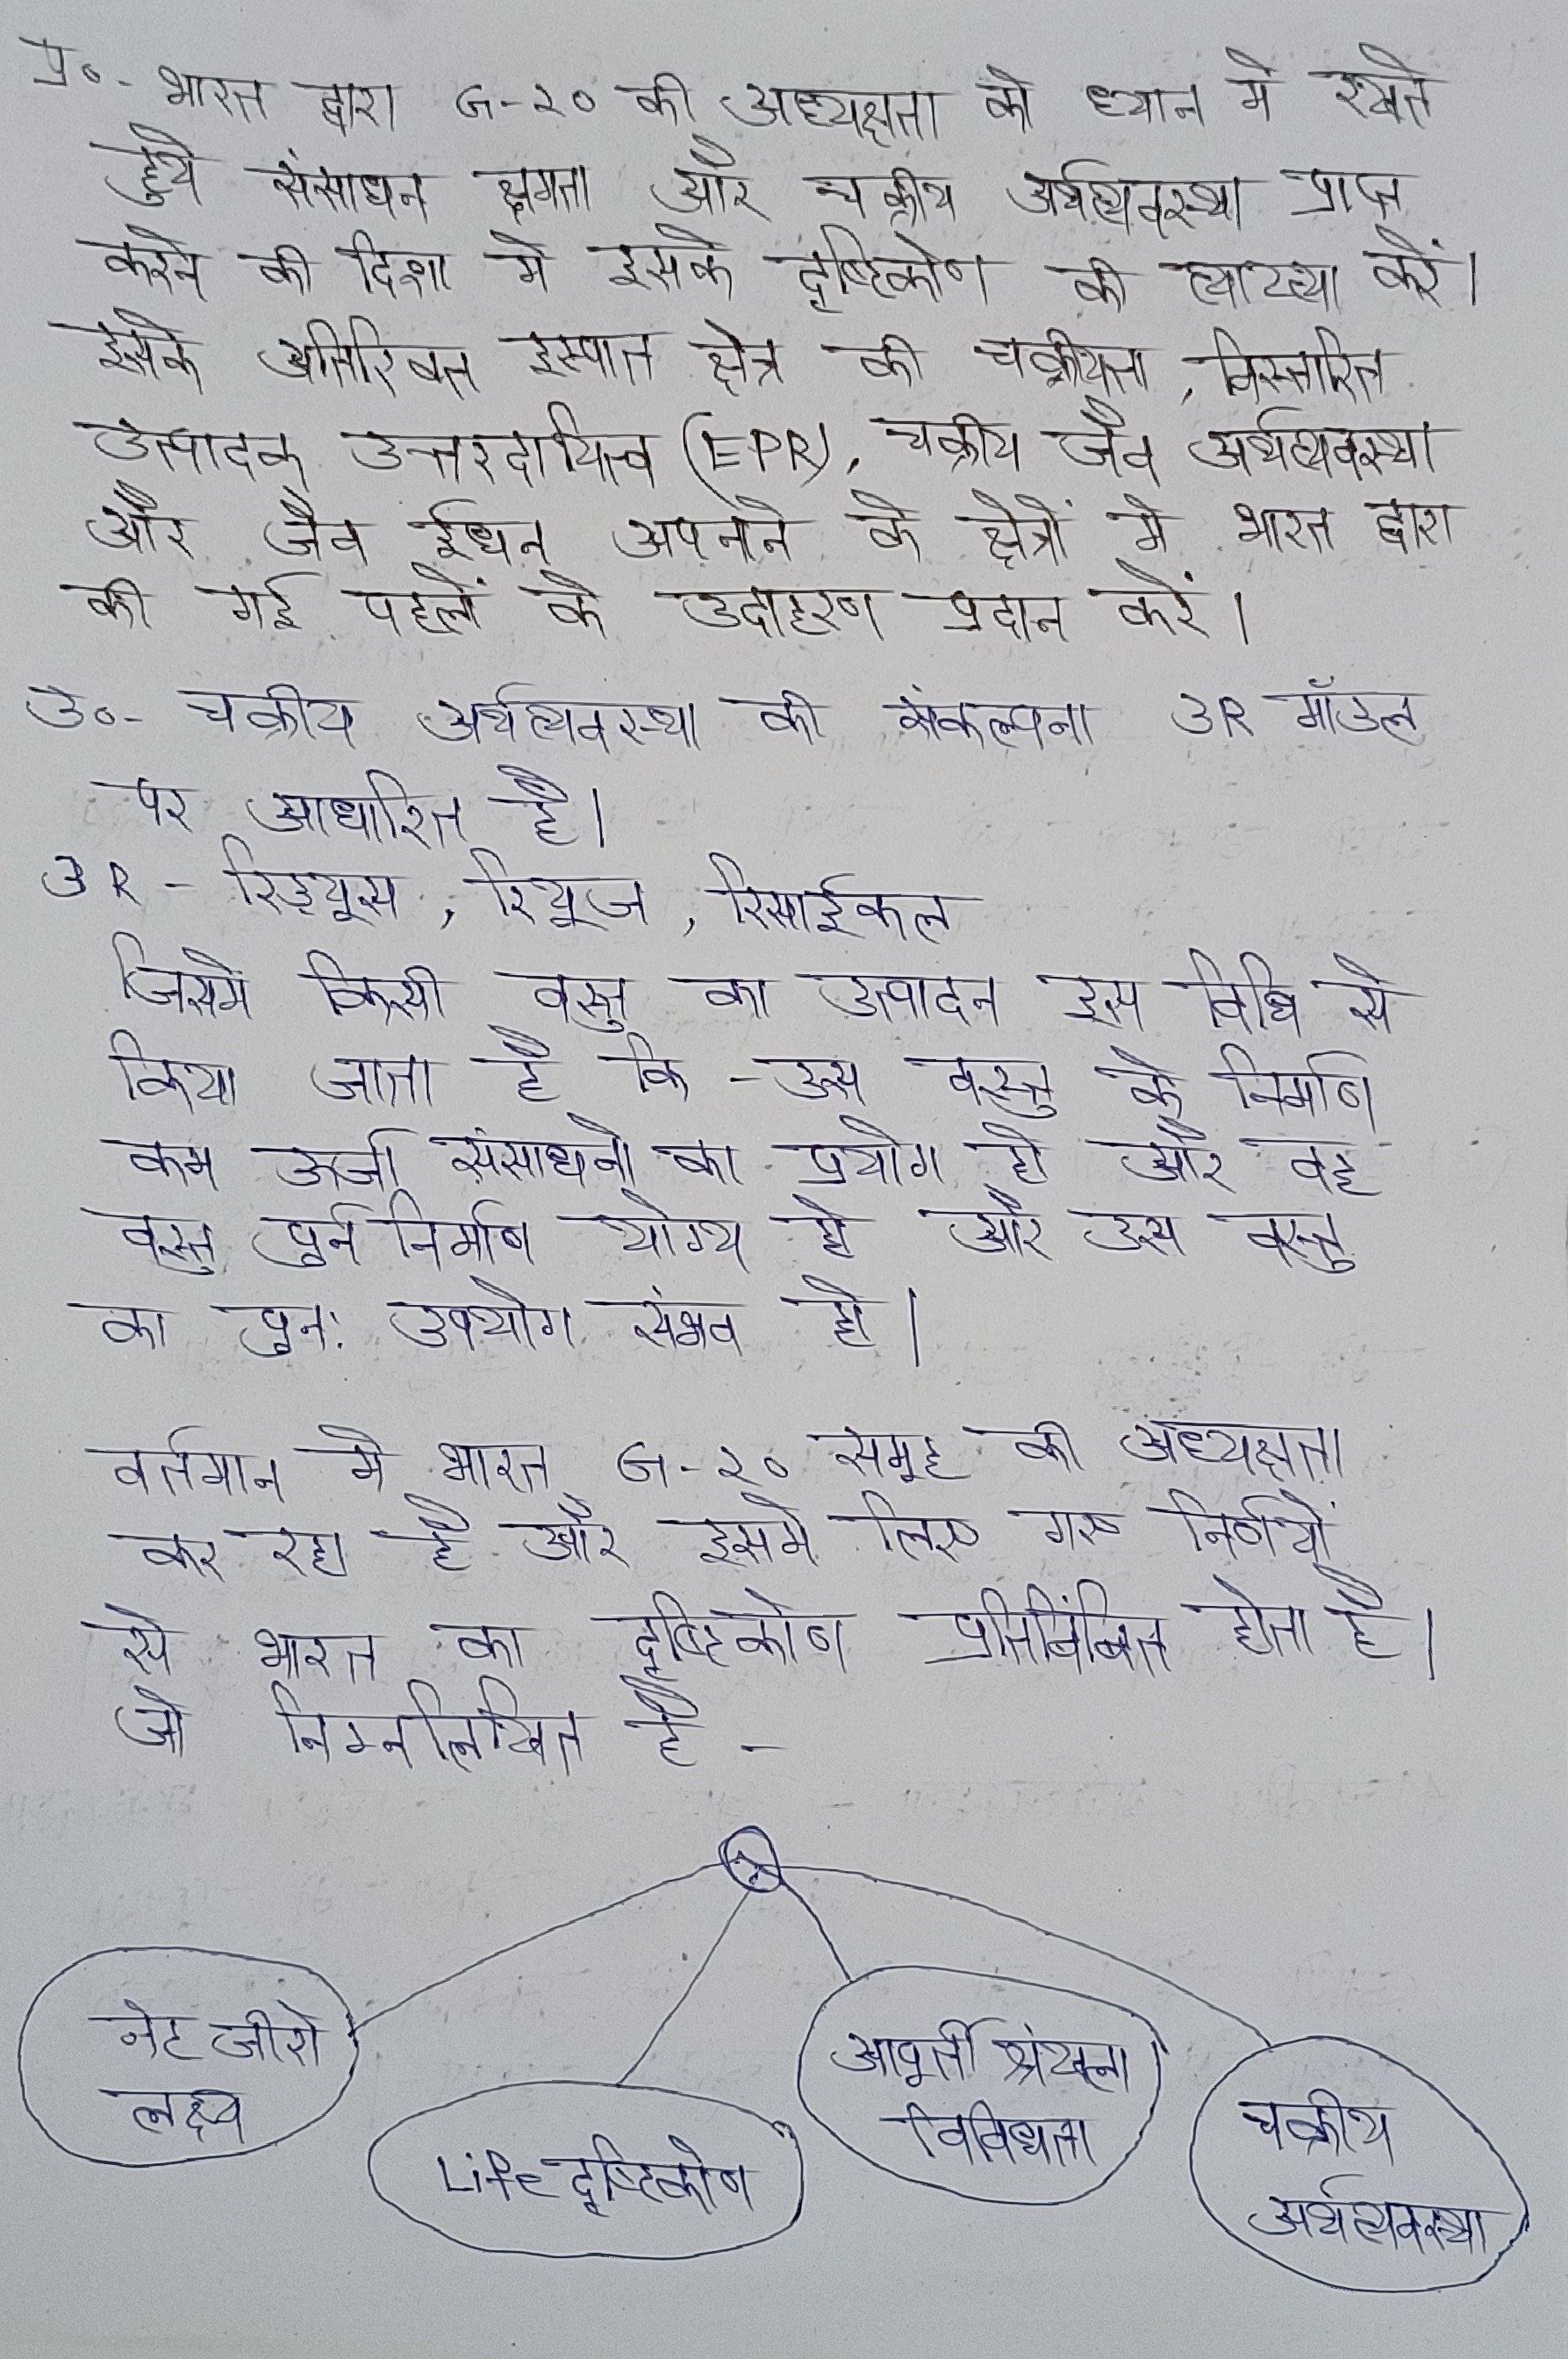 प्र०- भारत द्वारा G-२० की अध्यक्षता को ध्यान मे रखते
हुये संसाधन क्षमता और चक्रीय अर्थव्यवस्था प्राप्त
करने की दिशा मे इसके दृष्टिकोण की व्याख्या करें।
इसके अतिरिक्त इस्पात क्षेत्र की चक्रीयता, विस्तारित
उत्पादक उत्तरदायित्व (EPR), चक्रीय जैव अर्थव्यवस्था
और जैव ईंधन अपनाने के क्षेत्रों मे भारत द्वारा
की गई पहलों के उदाहरण प्रदान करें।
उ०- चक्रीय अर्थव्यवस्था की संकल्पना 3R मॉडल
पर आधारित है।
3R - रिड्यूस, रियूज, रिसाईकल
जिसमे किसी वस्तु का उत्पादन इस विधि से
किया जाता है कि - उस वस्तु के निर्माण
कम ऊर्जा संसाधनो का प्रयोग हो और वह
वस्तु पुर्न निर्माण योग्य हो और उस वस्तु
का पुन: उपयोग संभव हो।
वर्तमान मे भारत G-२० समूह की अध्यक्षता
कर रहा है और इसमे लिए गए निर्णयों
से भारत का दृष्टिकोण प्रतिबिंबित होता है।
जो निम्नलिखित है -
नेट जीरो
लक्ष्य
Life दृष्टिकोण
आपूर्ती श्रंखला
विविधता
चक्रीय
अर्थव्यवस्था